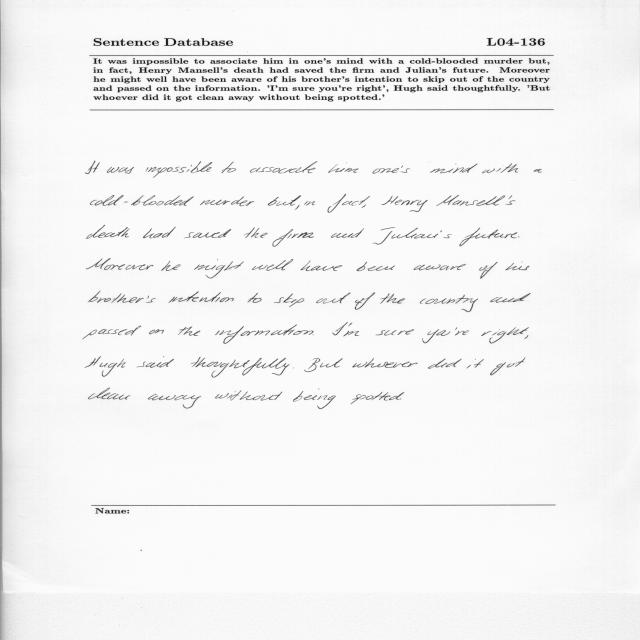 Sentence Database L04-136
It was impossible to associate him in one's mind with a cold-blooded murder but,
in fact, Henry Mansell's death had saved the firm and Julian's future. Moreover
he might well have been aware of his brother's intention to skip out of the country
and passed on the information. 'I'm sure you're right', Hugh said thoughtfully. 'But
whoever did it got clean away without being spotted.'
It was impossible to associate him one's mind with a
cold-blooded murder but, in fact, Henry Mansell's
death had saved the firm and Julian's future.
Moreover he might well have been aware of his
brother's intention to skip out of the country and
passed on the information. I'm sure you're right,
Hugh said thoughtfully. But whoever did it got
clean away without being spotted
Name: